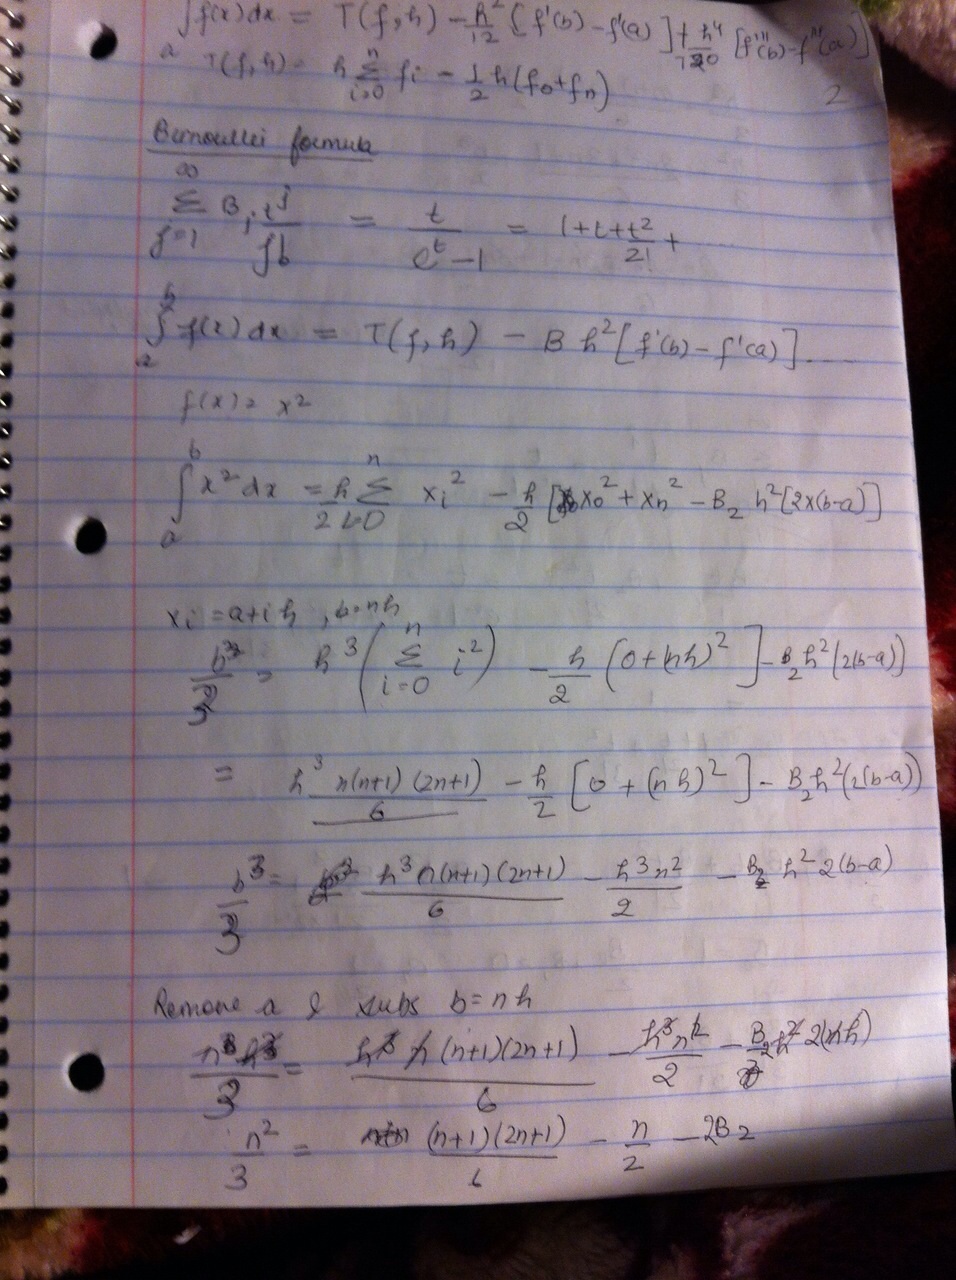 ∫_a f(x)dx = T(f,h) - h²/12 [f'(b) - f'(a)] + h⁴/720 [f'''(b) - f'''(a)]
T(f,h) = h Σ_{i=0}^{n} fi - 1/2 h(f0+fn)
2
Bernoulli formula
Σ_{j=1}^{∞} B_j t^j/j! = t/(e^t - 1) = 1+t+t²/2! +
∫_a^b f(x) dx = T(f,h) - B h² [f'(b) - f'(a)] ....
f(x) = x²
∫_a^b x² dx = h/2 Σ_{i=0}^{n} xi² - h/2 [x0² + xn² - B2 h² [2x(b-a)]
xi = a+ih , b=nh
b³/3 = h³ (Σ_{i=0}^{n} i²) - h/2 [0+(nh)²] - B2 h² (2(b-a))
= h³ n(n+1)(2n+1)/6 - h/2 [0 + (nh)²] - B2 h² (2(b-a))
b³/3 = h³ n(n+1)(2n+1)/6 - h³n²/2 - B2 h² 2(b-a)
Remove a & subs b = nh
n³h³/3 = h³ n (n+1)(2n+1)/6 - h³n²/2 - B2 h² 2(nh)
n²/3 = (n+1)(2n+1)/6 - n/2 - 2B2